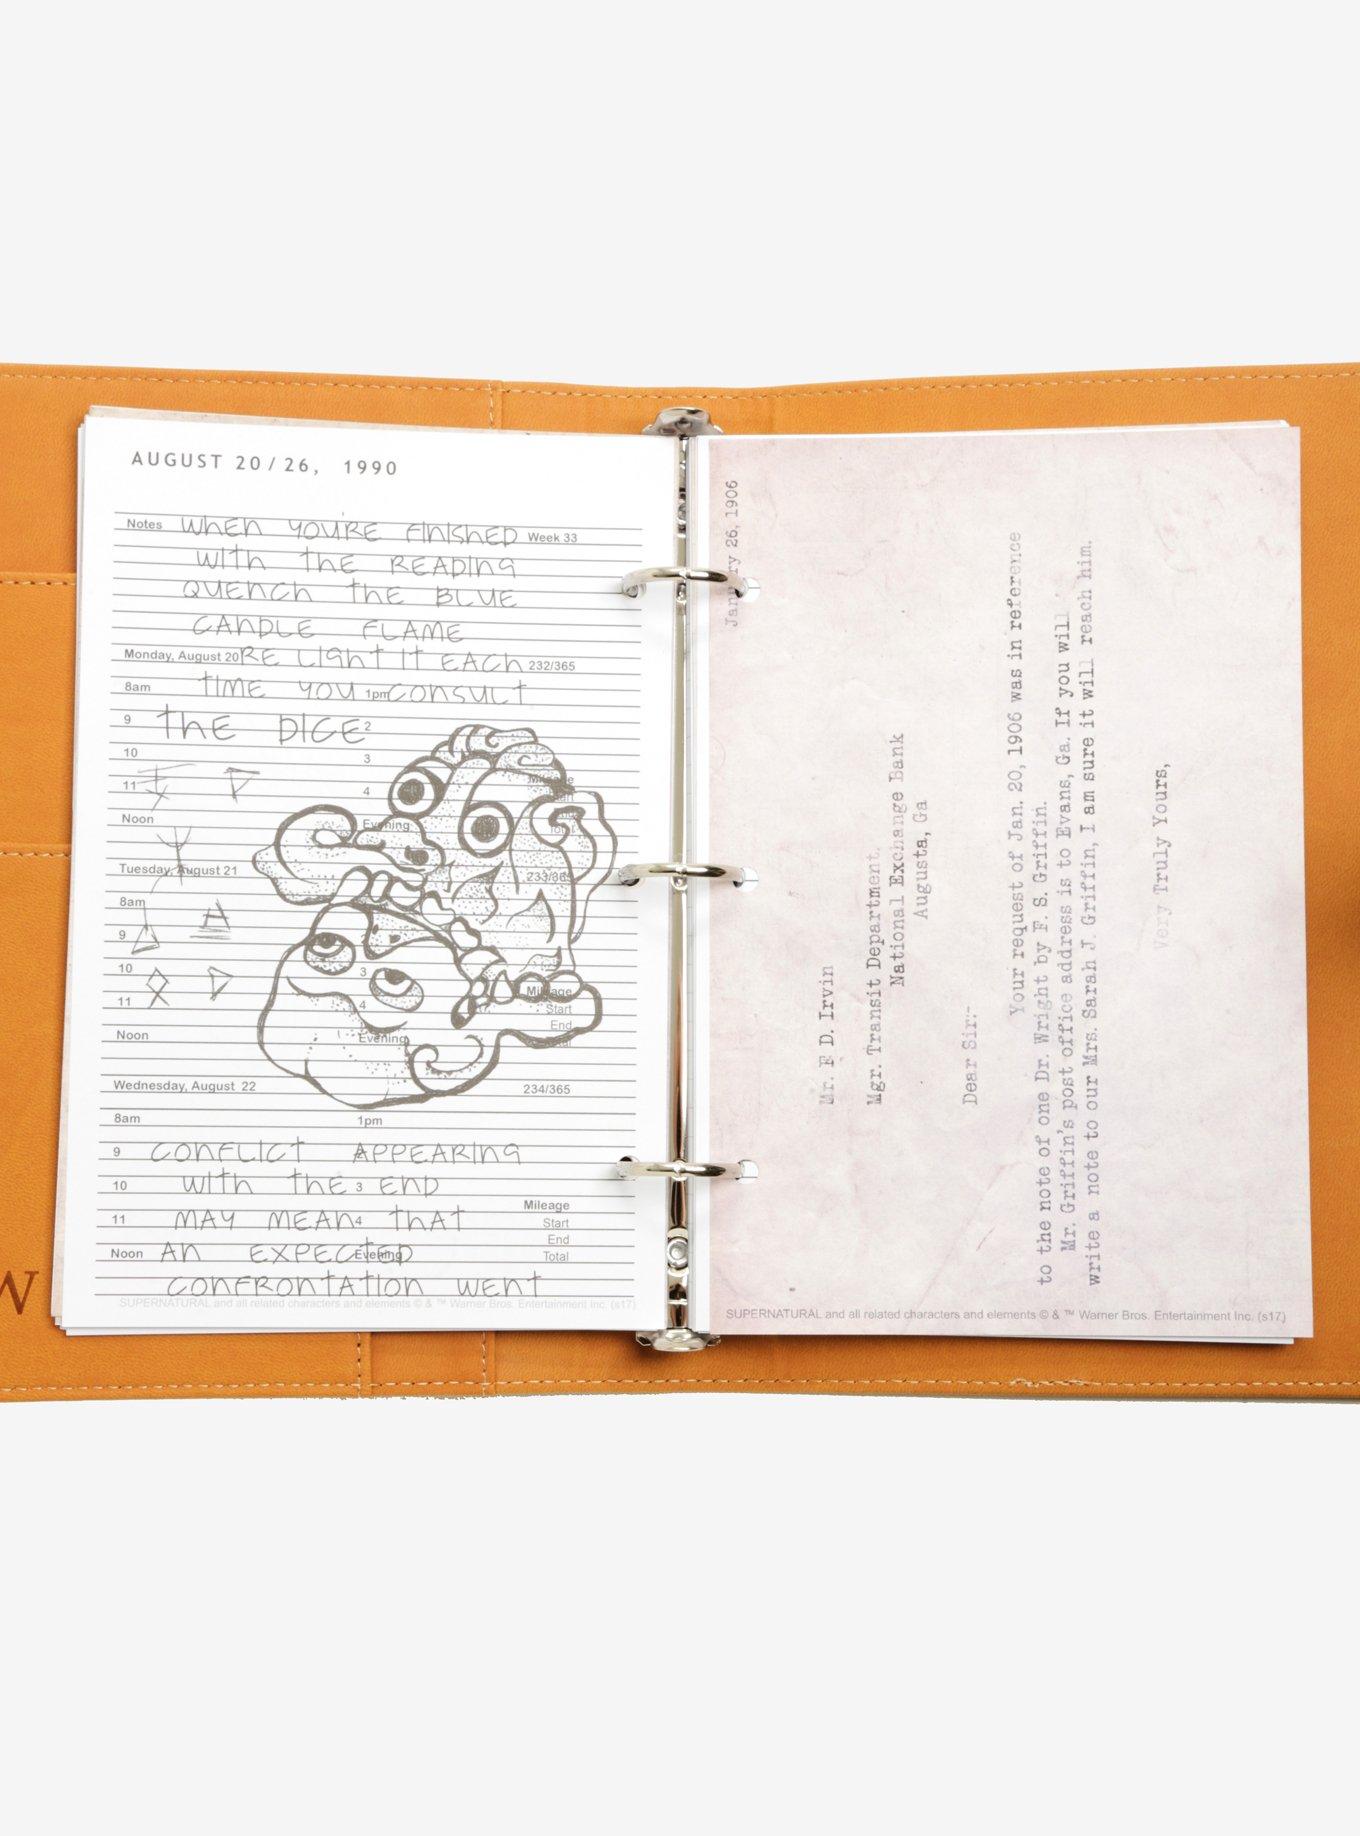 AUGUST 20/26, 1990
Notes WHEN YOU'RE FINISHED Week 33
WITH THE READING
QUENCH THE BLUE
CANDLE FLAME
Monday, August 20 RE LIGHT IT EACH 232/365
8am TIME YOU 1pm CONSULT
9 THE DICE 2
10 3
11 4
Noon Evening
Mileage
Tuesday, August 21 233/365
8am
9
10 3 Mileage
11 4 Start
End
Noon Evening
Wednesday, August 22 234/365
8am 1pm
9 CONFLICT APPEARING
10 WITH THE 3 END
Mileage
11 MAY MEAN 4 THAT Start
End
Noon AN EXPECTED Evening Total
CONFRONTATION WENT
SUPERNATURAL and all related characters and elements © & ™ Warner Bros. Entertainment Inc. (s17)
W
January 26, 1906
Mr. F D. Irvin
Mgr. Transit Department.
National Exchange Bank
Augusta, Ga
Dear Sir:-
Your request of Jan. 20, 1906 was in reference
to the note of one Dr. Wright by F. S. Griffin.
Mr. Griffin's post office address is to Evans, Ga. If you will
write a note to our Mrs. Sarah J. Griffin, I am sure it will reach him.
Very Truly Yours,
SUPERNATURAL and all related characters and elements © & ™ Warner Bros. Entertainment Inc. (s17)